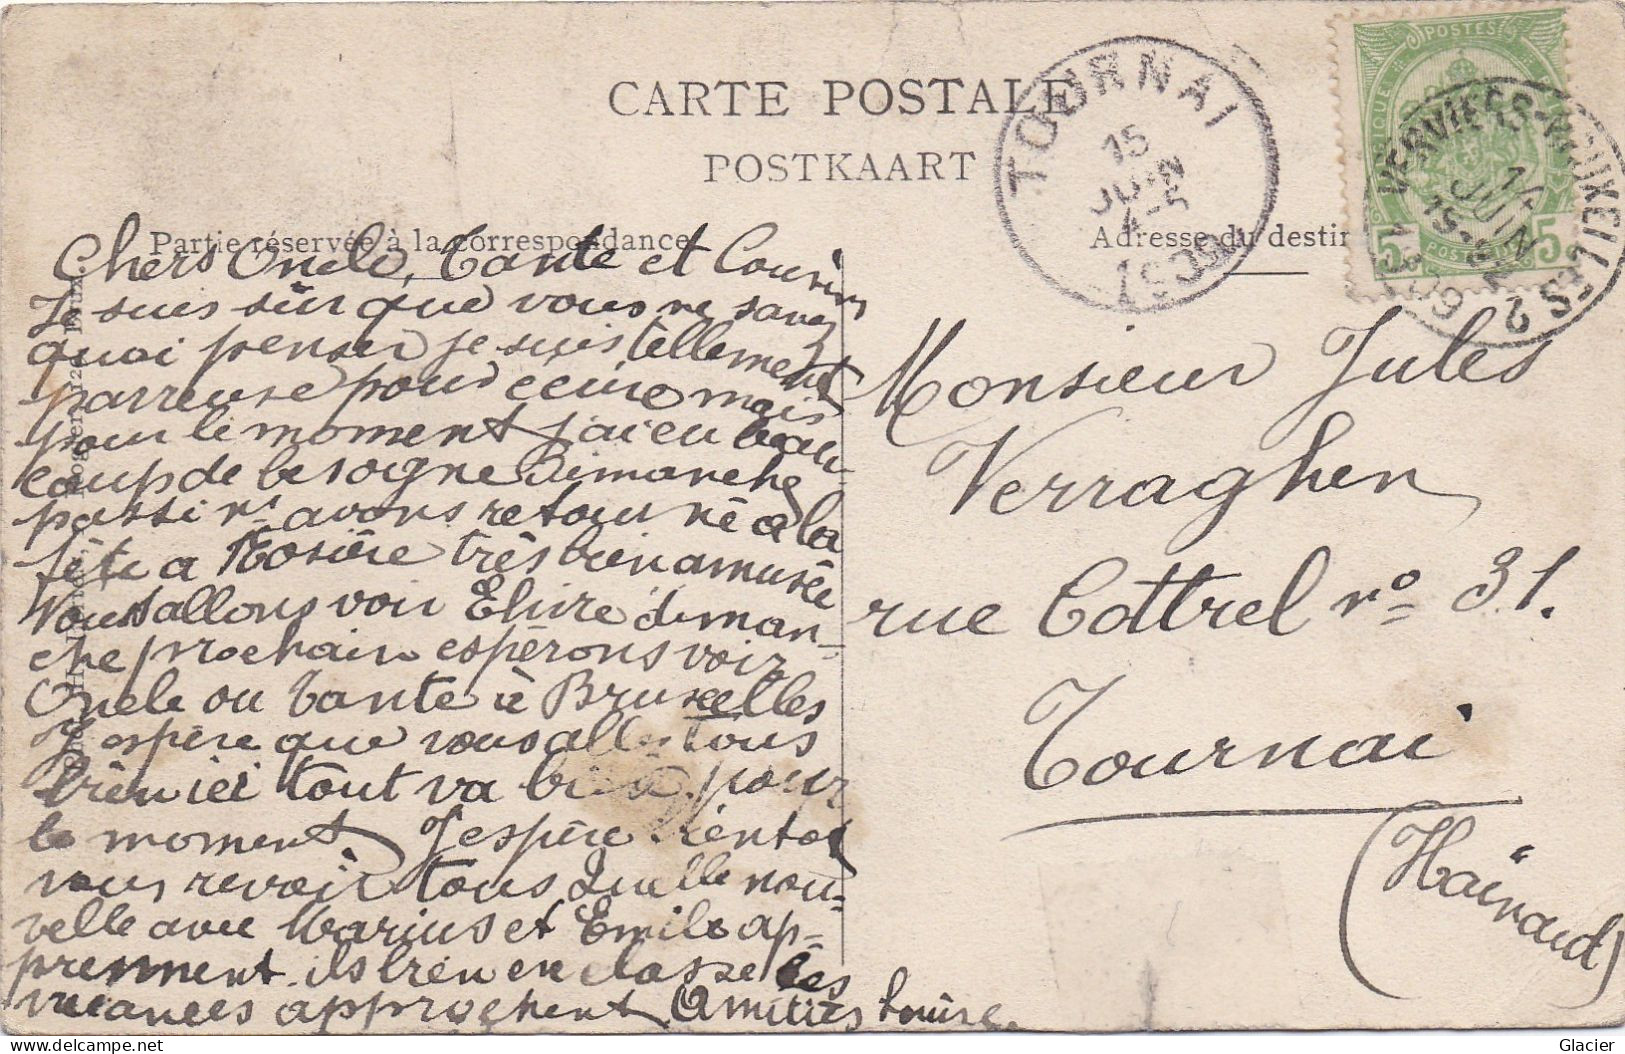 CARTE POSTALE
POSTKAART
Partie réservée à la correspondance
Adresse du destin
TOURNAI
15
JUIN
4-5
1909
POSTES
5 5
VERVIERS-BRUXELLES 2
14
JUIN
Chers Oncle, Tante et Cousins
Je suis sûr que vous ne savez
quoi penser je suis tellement
parreuse pour ecrire mais
pour le moment j'ai eu beau
coup de besogne Dimanche
passé ns avons retour né a la
fête a Rosière très bien amusée
Nous allons voir Elvire diman-
che prochain espérons voir
Oncle ou Tante à Bruxelles
J'espère que vous allez tous
bien ici tout va bien pour
le moment. J'espère bientot
vous revoir tous Quelle nou-
velle avec Marius et Emile ap-
prennent ils bien en classe les
vacances approchent Amitiés Louise.
Monsieur Jules
Verraghen
rue Cottrel no 31.
Tournai
(Hainaud)
Glacier
delcampe.net